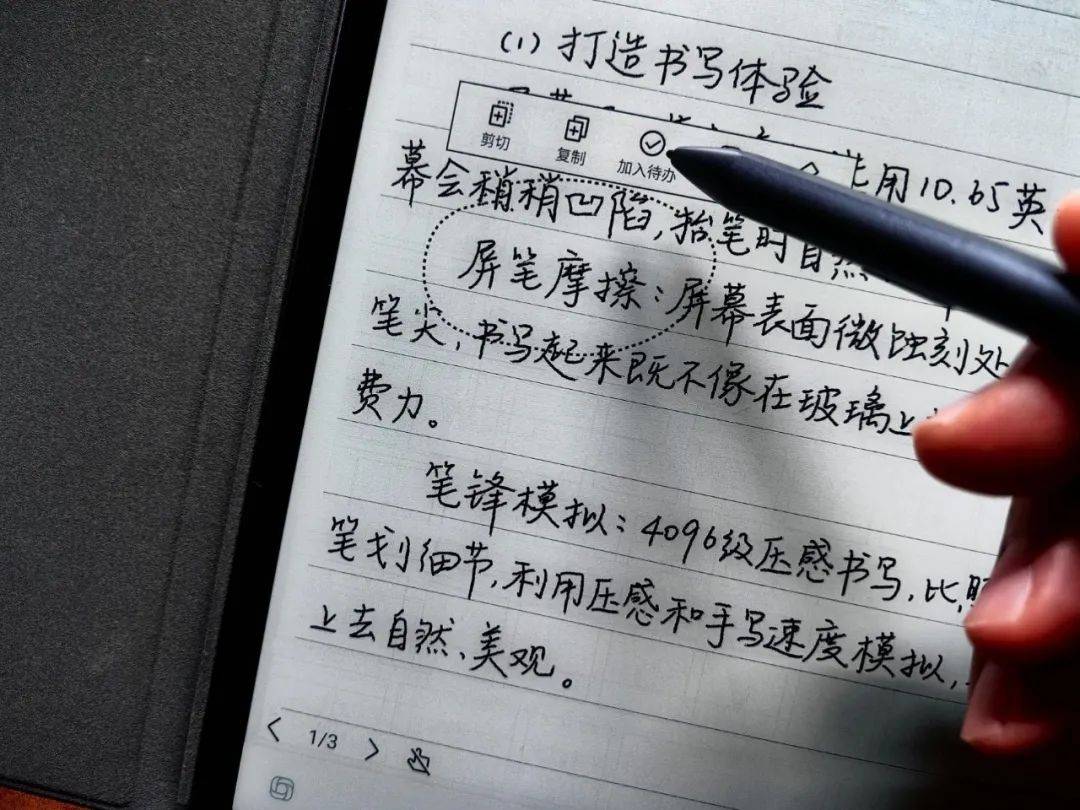 (1) 打造书写体验
剪切 复制 加入待办
用10.65英
幕会稍稍凹陷，抬笔时自然
屏笔摩擦：屏幕表面微蚀刻处
笔尖，书写起来既不像在玻璃上
费力。
笔锋模拟：4096级压感书写，比
笔划细节，利用压感和手写速度模拟，
上去自然、美观。
1/3